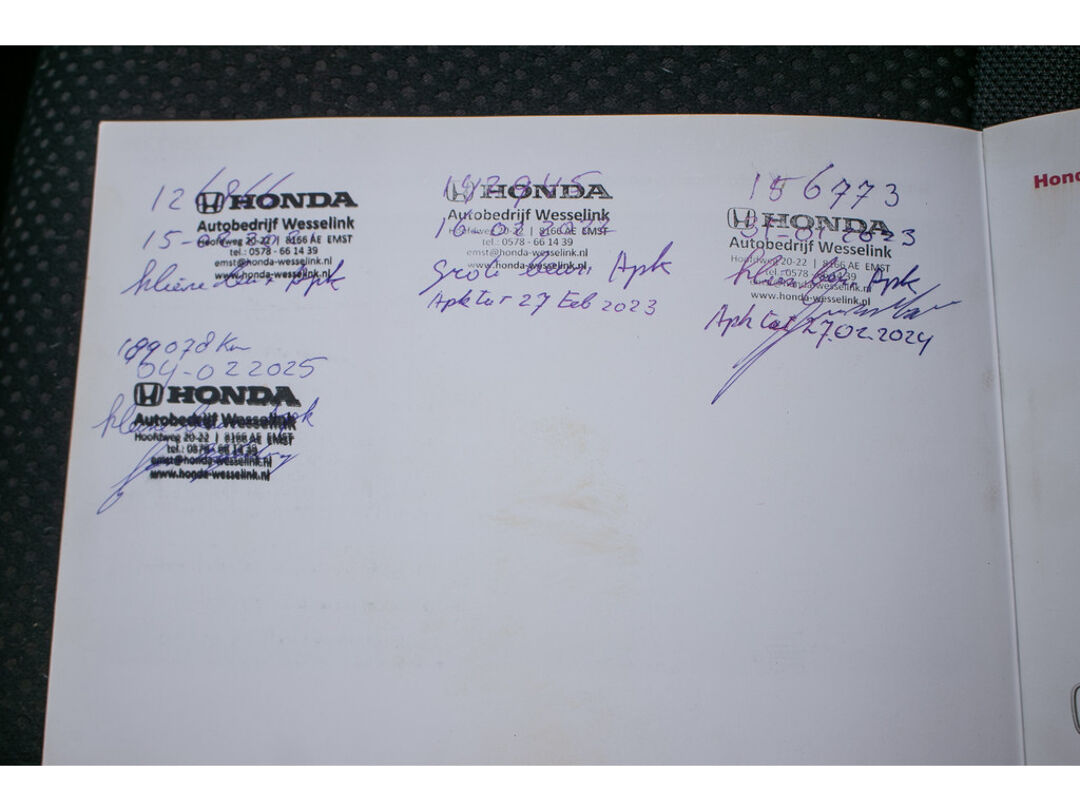 HONDA
Autobedrijf Wesselink
Hoofdweg 20-22 | 8166 AE EMST
tel.: 0578 - 66 14 39
emst@honda-wesselink.nl
www.honda-wesselink.nl
Apk
HONDA
Autobedrijf Wesselink
Hoofdweg 20-22 | 8166 AE EMST
tel.: 0578 - 66 14 39
emst@honda-wesselink.nl
www.honda-wesselink.nl
Grote beurt Apk
Apk tot 27 Feb 2023
156773
HONDA
31-01 2023
Autobedrijf Wesselink
Hoofdweg 20-22 | 8166 AE EMST
tel.: 0578 - 66 14 39
Apk
www.honda-wesselink.nl
Apk tot 27.02.2024
199078 Km
04-02 2025
HONDA
Autobedrijf Wesselink
Hoofdweg 20-22 | 8166 AE EMST
tel.: 0578 - 66 14 39
emst@honda-wesselink.nl
www.honda-wesselink.nl